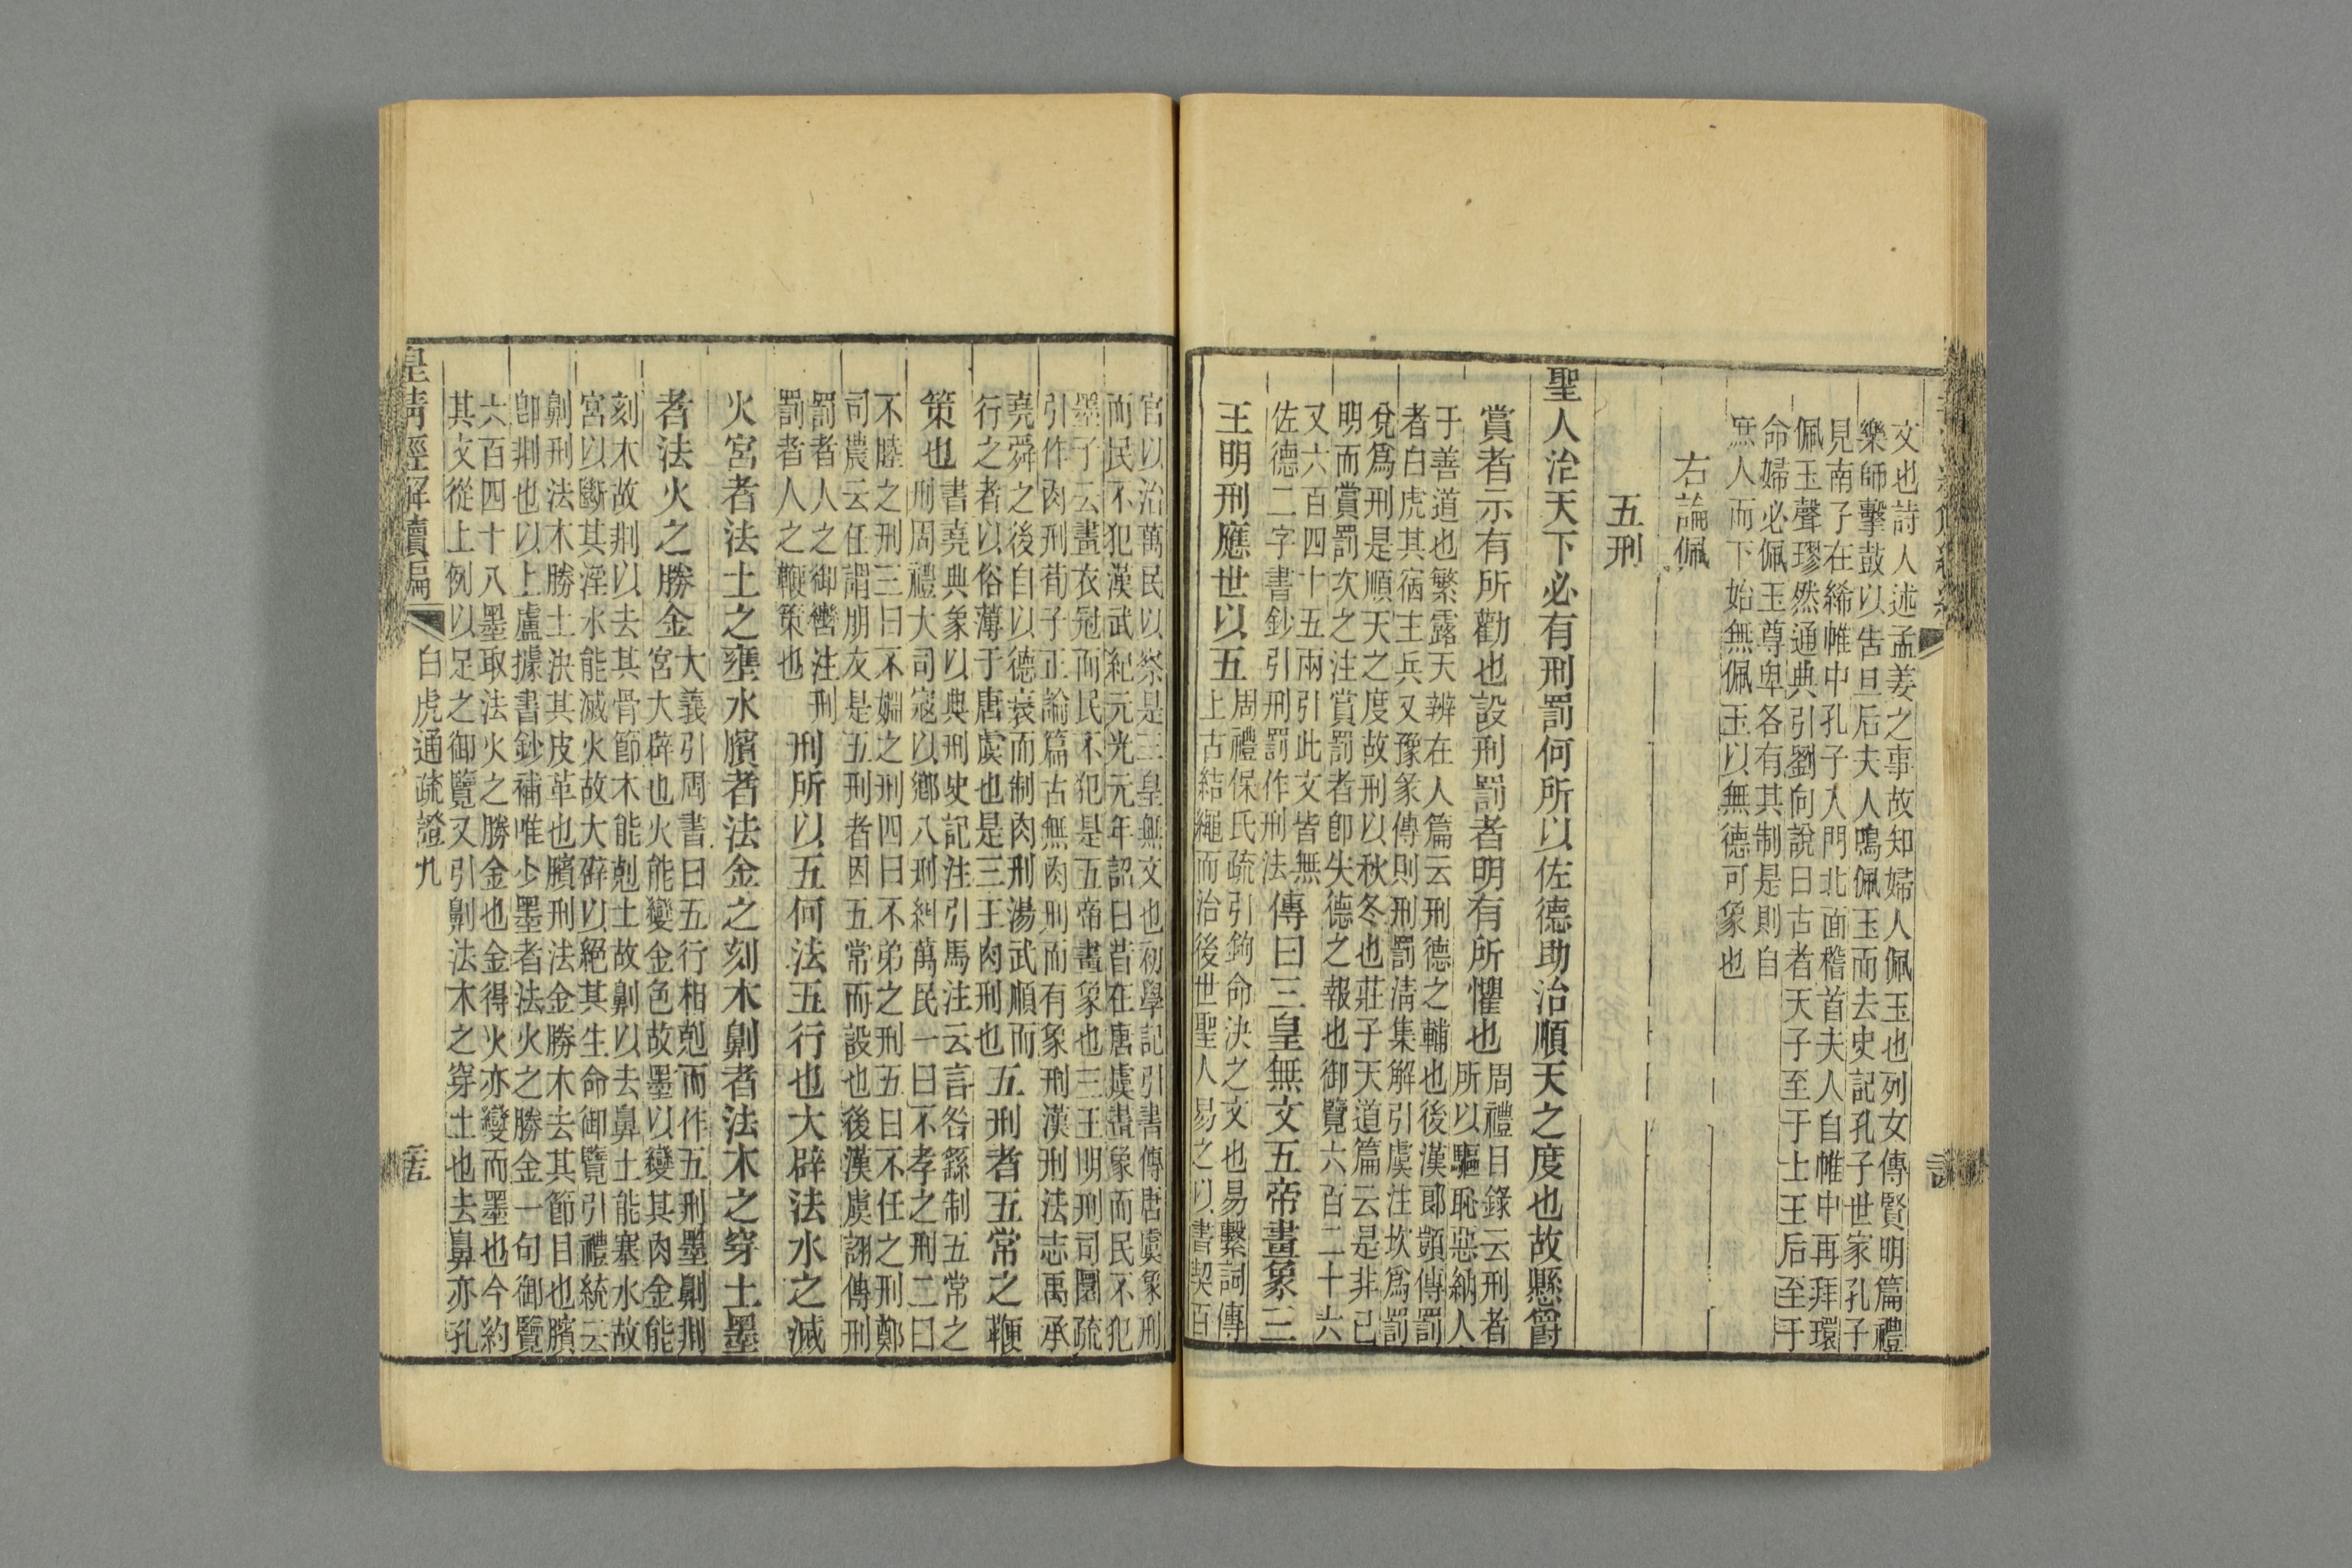 文也詩人述孟姜之事故知婦人佩玉也列女傳賢明篇禮
樂師擊鼓以告旦后夫人鳴佩玉而去史記孔子世家孔子
見南子在絺帷中孔子入門北面稽首夫人自帷中再拜環
佩玉聲璆然通典引劉向說曰古者天子至于士王后至于
命婦必佩玉尊卑各有其制是則自
庶人而下始無佩玉以無德可象也
右論佩
五刑
聖人治天下必有刑罰何所以佐德助治順天之度也故懸爵
賞者示有所勸也設刑罰者明有所懼也
周禮目錄云刑者
所以驅恥惡納人
于善道也繁露天辨在人篇云刑德之輔也後漢郎顗傳罰
者白虎其宿主兵又豫象傳則刑罰淸集解引虞注坎爲罰
兌爲刑是順天之度故刑以秋冬也莊子天道篇云是非已
明而賞罰次之注賞罰者卽失德之報也御覽六百二十六
又六百四十五兩引此文皆無
佐德二字書鈔引刑罰作刑法
傳曰三皇無文五帝畫象三
王明刑應世以五
周禮保氏疏引鉤命決之文也易繫詞傳
上古結繩而治後世聖人易之以書契百
官以治萬民以察是三皇無文也初學記引書傳唐虞象刑
而民不犯漢武紀元光元年詔曰昔在唐虞畫象而民不犯
墨子云畫衣冠而民不犯是五帝畫象也三王明刑司圜疏
引作肉刑荀子正論篇古無肉刑而有象刑漢刑法志禹承
堯舜之後自以德衰而制肉刑湯武順而
行之者以俗薄于唐虞也是三王肉刑也
五刑者五常之鞭
策也
書堯典象以典刑史記注引馬注云言咎繇制五常之
刑周禮大司寇以鄕八刑糾萬民一曰不孝之刑二曰
不睦之刑三曰不婣之刑四曰不弟之刑五曰不任之刑鄭
司農云任謂朋友是五刑者因五常而設也後漢虞詡傳刑
罰者人之御轡注刑
罰者人之鞭策也
刑所以五何法五行也大辟法水之滅
火宮者法土之壅水臏者法金之刻木劓者法木之穿土墨
者法火之勝金
大義引周書曰五行相剋而作五刑墨劓剕
宮大辟也火能變金色故墨以變其肉金能
刻木故剕以去其骨節木能剋土故劓以去鼻土能塞水故
宮以斷其淫水能滅火故大辟以絕其生命御覽引禮統云
劓刑法木勝土決其皮革也臏刑法金勝木去其節目也臏
卽剕也以上盧據書鈔補唯少墨者法火之勝金一句御覽
六百四十八墨取法火之勝金也金得火亦變而墨也今約
其文從上例以足之御覽又引劓法木之穿土也去鼻亦孔
皇淸經解續編
白虎通疏證九